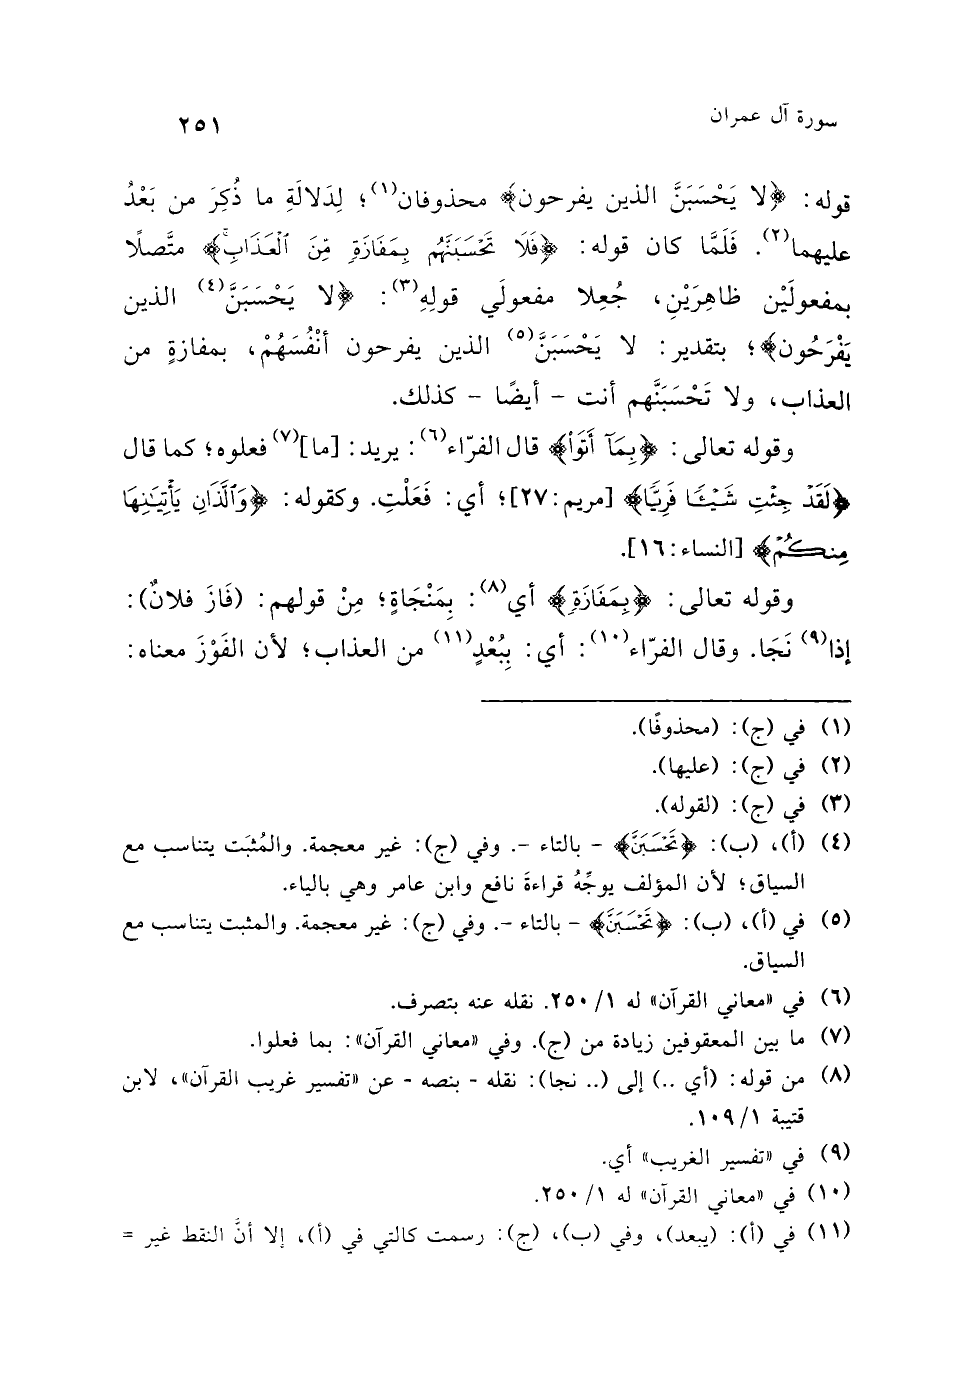 سورة آل عمران
٢٥١
قوله: ﴿لا يَحْسَبَنَّ الذين يفرحون﴾ محذوفان(١)؛ لِدَلالَةِ ما ذُكِرَ من بَعْدُ
عليهما(٢). فَلَمَّا كان قوله: ﴿فَلَا تَحْسَبَنَّهُم بِمَفَازَةٍ مِّنَ ٱلْعَذَابِۖ﴾ متَّصلًا
بمفعولَيْن ظاهِرَيْنِ، جُعِلا مفعولَي قولِهِ(٣): ﴿لا يَحْسَبَنَّ(٤) الذين
يَفْرَحُون﴾؛ بتقدير: لا يَحْسَبَنَّ(٥) الذين يفرحون أنْفُسَهُمْ، بمفازةٍ من
العذاب، ولا تَحْسَبَنَّهم أنت - أيضًا - كذلك.
وقوله تعالى: ﴿بِمَآ أَتَواْ﴾ قال الفرّاء(٦): يريد: [ما](٧) فعلوه؛ كما قال
﴿لَقَدْ جِئْتِ شَيْـًٔا فَرِيًّا﴾ [مريم: ٢٧]؛ أي: فَعَلْتِ. وكقوله: ﴿وَٱلَّذَانِ يَأْتِيَٰنِهَا
مِنكُمْ﴾ [النساء: ١٦].
وقوله تعالى: ﴿بِمَفَازَةٍ﴾ أي(٨): بِمَنْجَاةٍ؛ مِنْ قولهم: (فَازَ فلانٌ):
إذا(٩) نَجَا. وقال الفرّاء(١٠): أي: بِبُعْدٍ(١١) من العذاب؛ لأن الفَوْزَ معناه:
(١) في (ج): (محذوفًا).
(٢) في (ج): (عليها).
(٣) في (ج): (لقوله).
(٤) (أ)، (ب): ﴿تَحْسَبَنَّ﴾ - بالتاء -. وفي (ج): غير معجمة. والمُثبَت يتناسب مع
السياق؛ لأن المؤلف يوجِّهُ قراءةَ نافع وابن عامر وهي بالياء.
(٥) في (أ)، (ب): ﴿تَحْسَبَنَّ﴾ - بالتاء -. وفي (ج): غير معجمة. والمثبت يتناسب مع
السياق.
(٦) في «معاني القرآن» له ١/ ٢٥٠. نقله عنه بتصرف.
(٧) ما بين المعقوفين زيادة من (ج). وفي «معاني القرآن»: بما فعلوا.
(٨) من قوله: (أي ..) إلى (.. نجا): نقله - بنصه - عن «تفسير غريب القرآن»، لابن
قتيبة ١/ ١٠٩.
(٩) في «تفسير الغريب» أي.
(١٠) في «معاني القرآن» له ١/ ٢٥٠.
(١١) في (أ): (يبعد)، وفي (ب)، (ج): رسمت كالتي في (أ)، إلا أنَّ النقط غير =